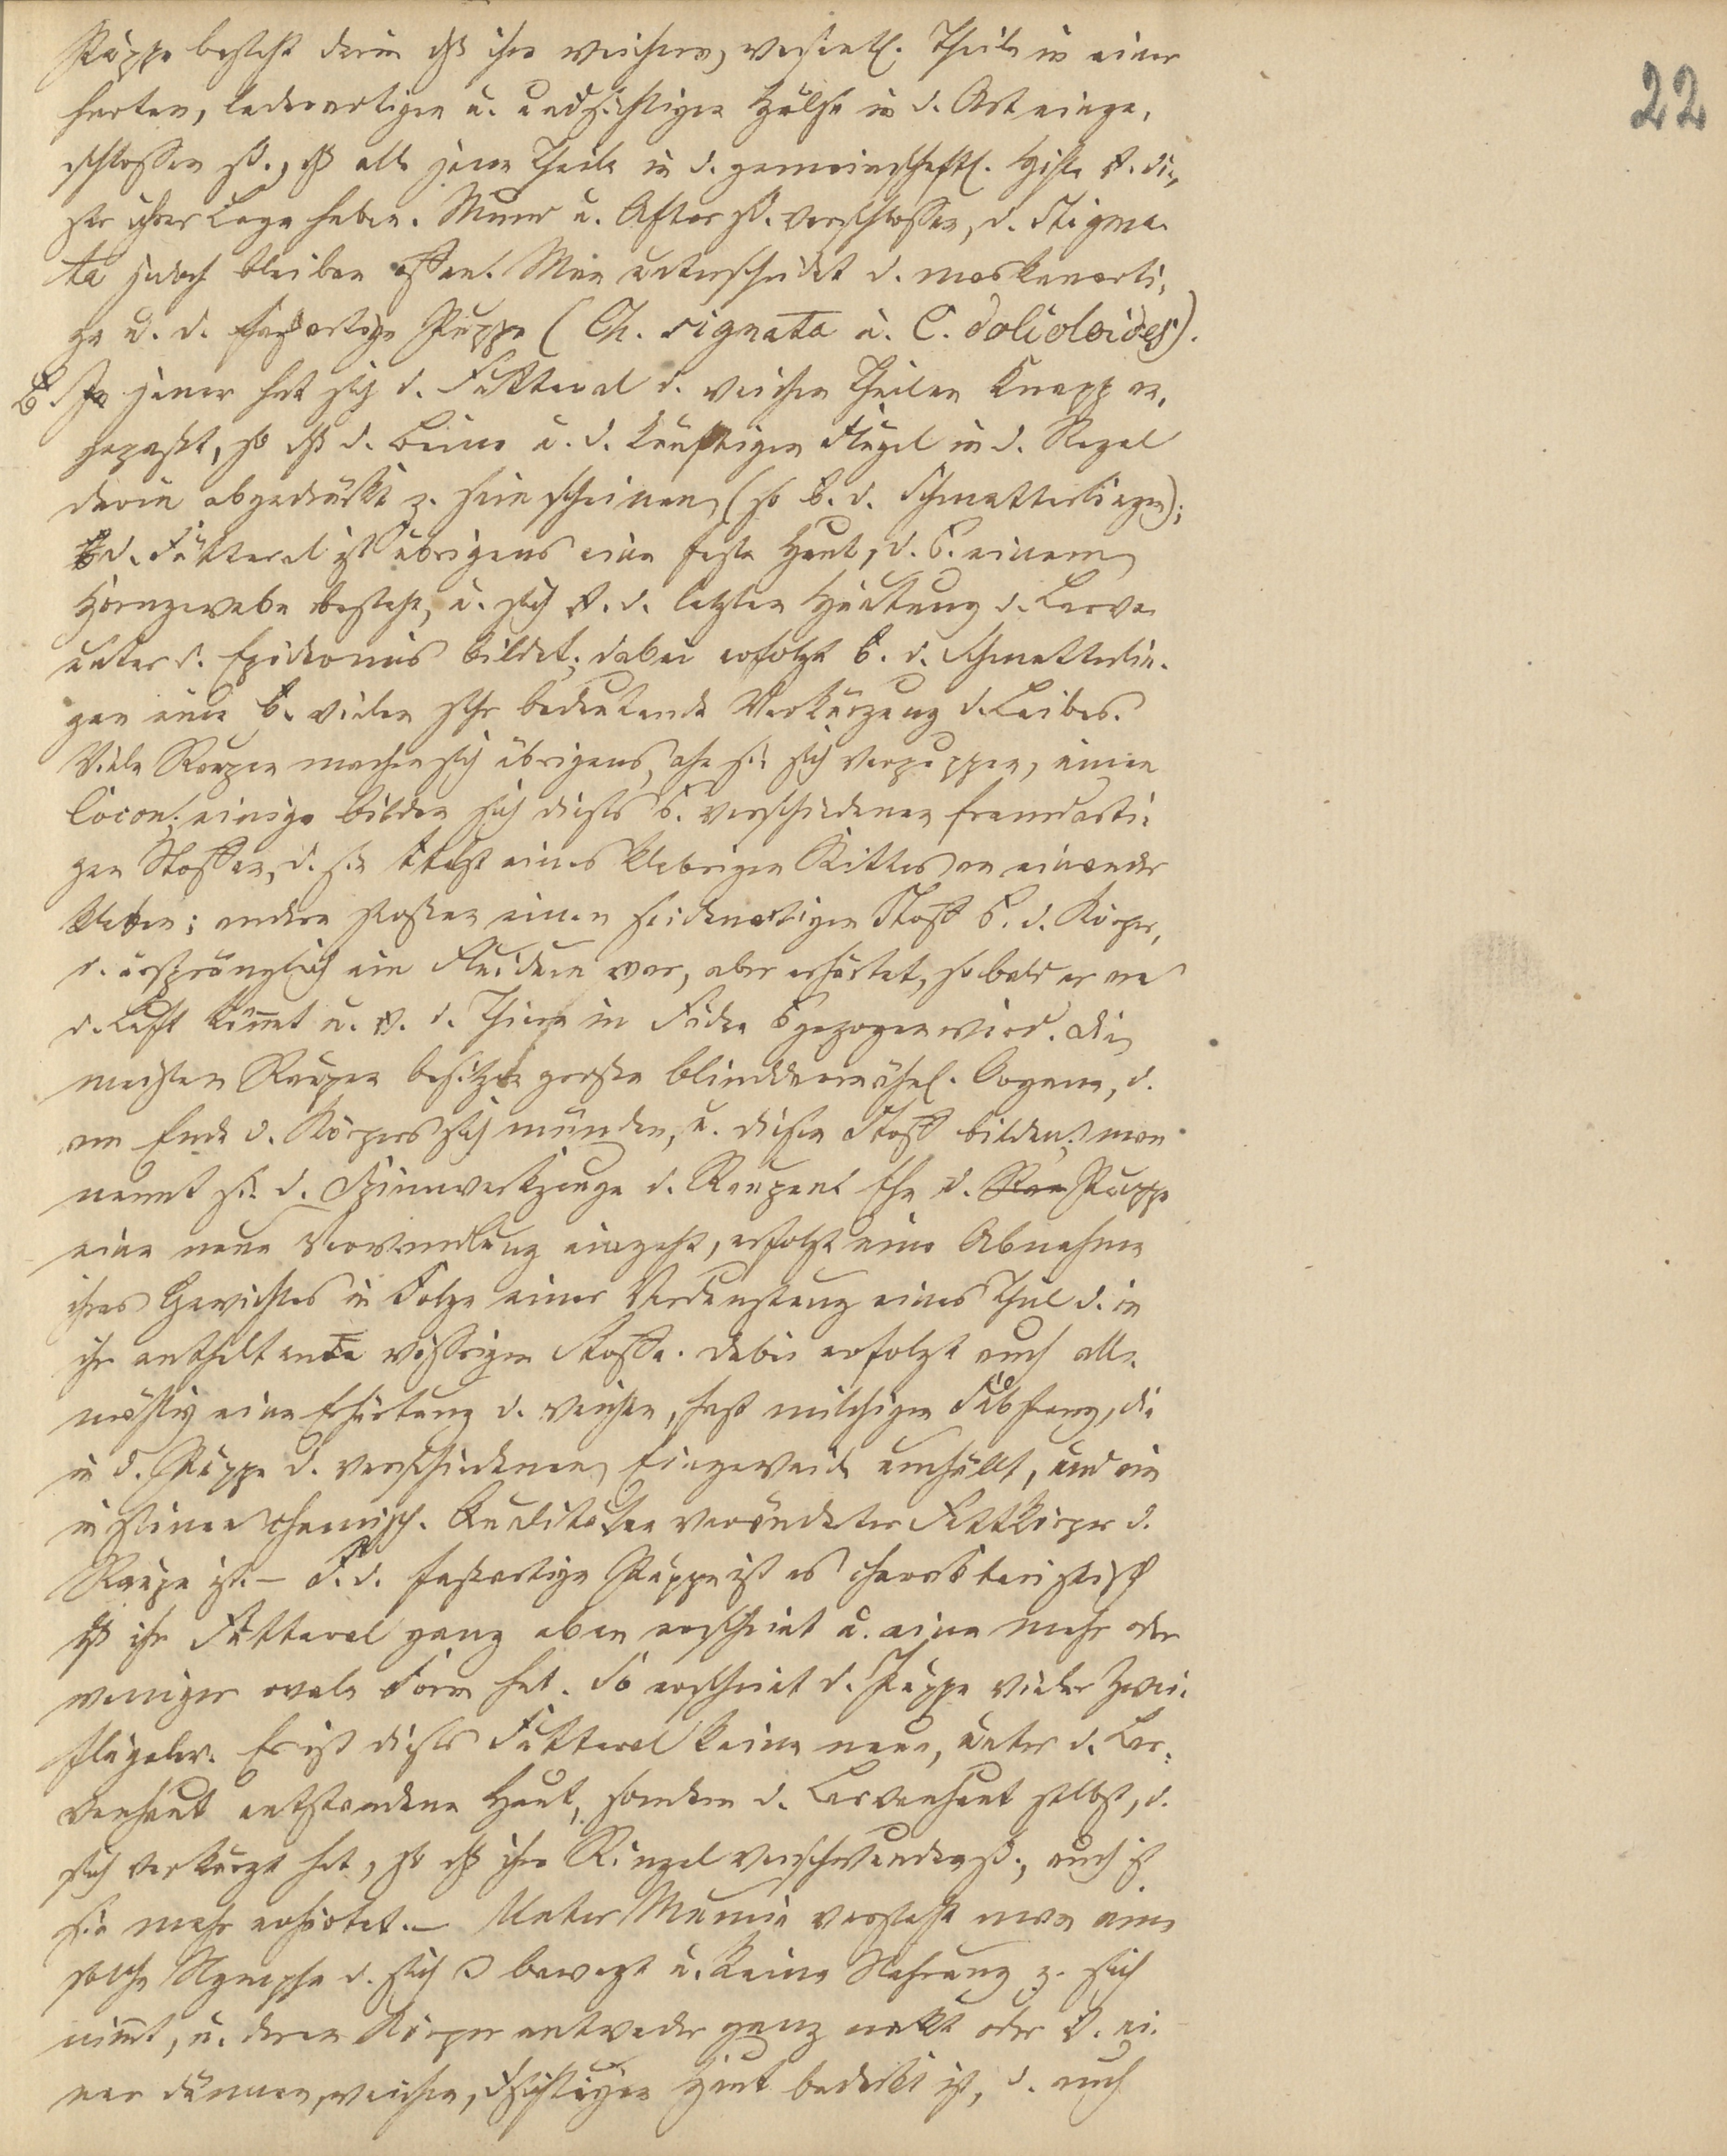 22
Puppe besteht darin dß ihre weichern, wesentl. Theile in einer
harten, lederartigen u. undsichtigen Hülse in d. Art einge„
schlossen sd., dß alle jene Theile in d. gemeinschaftl. Hülse v. die„
ser ihre Lage haben. Mund u. After sd. verschlossen, d. Stigma„
ta jedoch bleiben offen. Man unterscheidet d. maskenarti„
ge u. d. faßartige Puppe (Ch. signata u. C. dolioloides).
In jener hat sich d. Futteral d. weichen Theilen knapp an„
gepaßt, so dß d. Beine u. d. künftigen Flügel in d. Regel
darin abgedrückt z. sein scheinen, (so b. d. Schmetterlingen);
d. Futteral ist übrigens eine feste Haut, d. einem
Horngewebe besteht, u. sich v. d. letzten Häutung d. Larve
unter d. Epidermis bildet; dabei erfolgt b. d. Schmetterlin„
gen eine b. vielen sehr bedeutende Verkürzung d. Leibes.
Viele Raupen machen sich übrigens, ehe sie sich verpuppen, einen
Cocon; einige bilden sich dieses verschiedenen fremdarti„
gen Stoffen, d. sie ttelst eines klebrigen Kittes an einander
kleben; andere stoßen einen seidenartigen Stoff d. Körper,
d. ursprünglich ein Fluidum war, aber erhärtet, so bald er an
d. Luft kommt u. v. d. Thiere in Fäden gezogen wird. Die
meisten Raupen besitzen große blinddarmähnl. Organe, d.
am Ende d. Körpers sich münden, u. diesen Stoff bilden; man
nennt sie d. Spinnwerkzeuge d. Raupen. Ehe d. Puppe
eine neue Verwandlung eingeht, erfolgt eine Abnahme
ihres Gewichtes in Folge einer Verdunstung eines Theil d. in
ihr enthaltende wässrigen Stoffe. Dabei erfolgt auch all„
mählig eine Erhärtung d. weichen, fast milchigen Substanz, die
in d. Puppe d. verschiedenen Eingeweide umhüllt, und ein
in seinen chemisch. Qualitäten veränderter Fettkörper d.
Raupe ist. – F. d. faßartige Puppe ist es charakteristisch
dß ihr Futteral ganz eben erscheint u. eine mehr oder
weniger ovale Form hat. So erscheint d. Puppe vieler Zwei„
flügeler. Es ist dieses Futteral keine neue, unter d. Lar„
venhaut entstandene Haut, sondern d. Larvenhaut selbst, d.
sich verkürzt hat, so dß ihre Ringel verschwunden sd., auch ist
sie mehr erhärtet. – Unter Mumie versteht man eine
solche Nymphe d. sich bewegt u. keine Nahrung z. sich
nimmt, u. deren Körper entweder ganz nackt oder v. ei„
ner dünnen, weichen, dsichtigen Haut bedeckt ist, d. auch